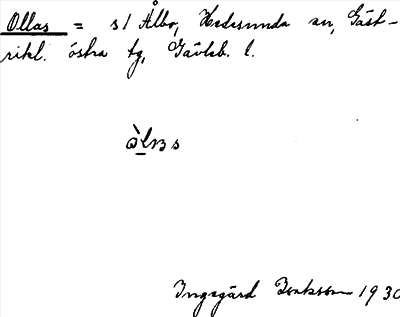 Ollas = s/ Ålbo, Hedesunda sn, Gäst-
rikl. östra tg, Gävleb. l.
Ingegärd Isaksson 1930